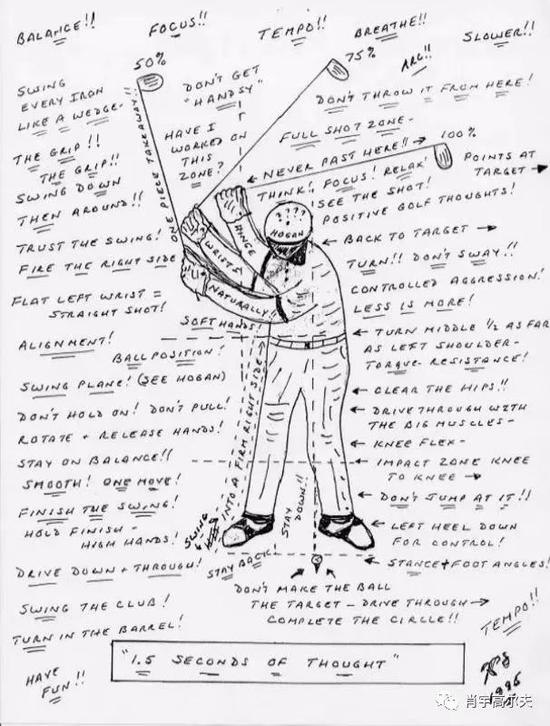 BALANCE!!
FOCUS!!
TEMPO!!
BREATHE!!
SLOWER!!
50%
75%
ARC!!
SWING
EVERY IRON
LIKE A WEDGE-
DON'T GET
"HANDSY"
DON'T THROW IT FROM HERE!
THE GRIP!!
THE GRIP!!
ONE PIECE TAKEAWAY!!
HAVE I
WORKED ON
THIS
ZONE?
FULL SHOT ZONE-
100%
← NEVER PAST HERE!!
POINTS AT
TARGET →
THINK! FOCUS! RELAX!
SEE THE SHOT!
POSITIVE GOLF THOUGHTS!
SWING DOWN
THEN AROUND!!
????
HOGAN
TRUST THE SWING!
FIRE THE RIGHT SIDE
HINGE
WRISTS
NATURALLY!!
← BACK TO TARGET →
TURN!! DON'T SWAY!!
CONTROLLED AGGRESSION!
LESS IS MORE!
FLAT LEFT WRIST =
STRAIGHT SHOT!
SOFT HANDS!
← TURN MIDDLE 1/2 AS FAR
AS LEFT SHOULDER-
TORQUE- RESISTANCE!
ALIGNMENT!
BALL POSITION!
SWING PLANE! (SEE HOGAN)
← CLEAR THE HIPS!!
DON'T HOLD ON! DON'T PULL!
ROTATE + RELEASE HANDS!
← DRIVE THROUGH WITH
THE BIG MUSCLES-
← KNEE FLEX-
STAY ON BALANCE!!
SMOOTH! ONE MOVE!
← IMPACT ZONE KNEE
TO KNEE →
FINISH THE SWING!
HOLD FINISH-
HIGH HANDS!
SWING
INTO A FIRM RIGHT SIDE →
STAY DOWN!!
← DON'T JUMP AT IT!!
← LEFT HEEL DOWN
FOR CONTROL!
DRIVE DOWN + THROUGH!
STAY BACK!
← STANCE + FOOT ANGLES!
DON'T MAKE THE BALL
THE TARGET - DRIVE THROUGH →
COMPLETE THE CIRCLE!!
SWING THE CLUB!
TURN IN THE BARREL!
TEMPO!!
"1.5 SECONDS OF THOUGHT"
HAVE
FUN!!
1996
肖宇高尔夫